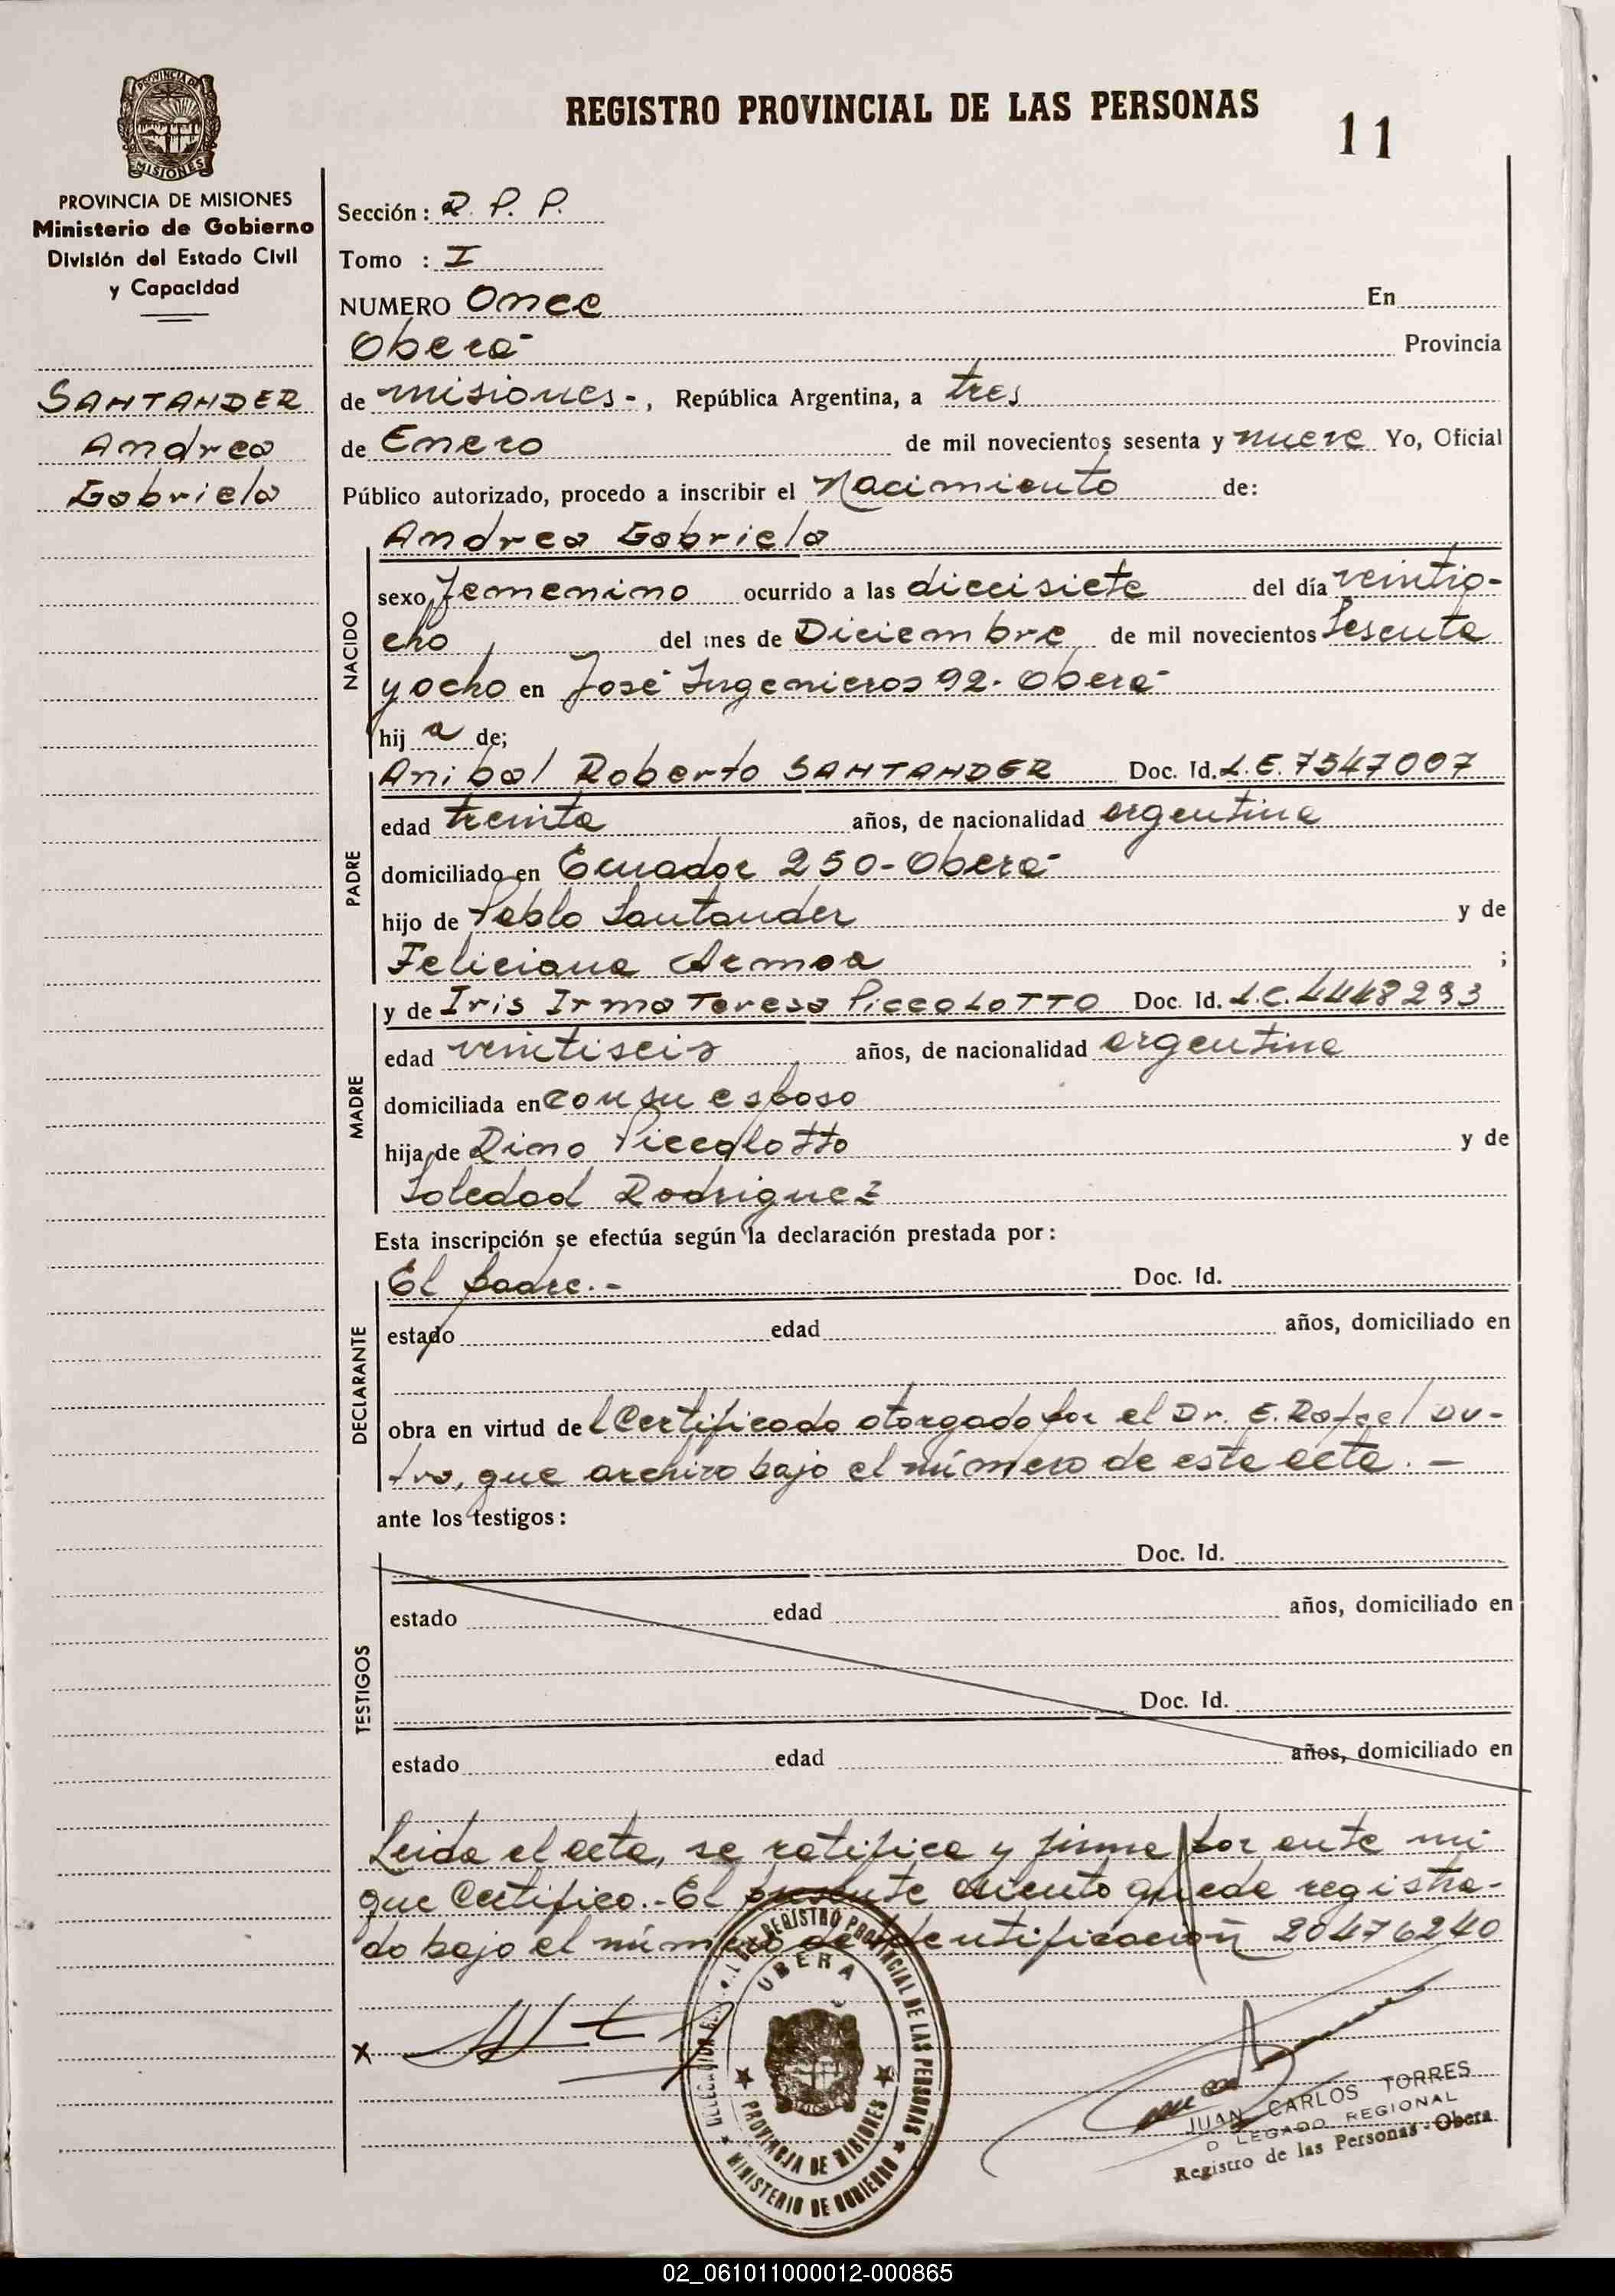 REGISTRO PROVINCIAL DE LAS PERSONAS
11
PROVINCIA DE MISIONES
PROVINCIA DE MISIONES
Ministerio de Gobierno
División del Estado Civil
y Capacidad
SANTANDER
Andrea
Gabriela
Sección: R. P. P.
Tomo : I
NUMERO Once En
Oberá Provincia
de misiones-, República Argentina, a tres
de Enero de mil novecientos sesenta y nueve Yo, Oficial
Público autorizado, procedo a inscribir el Nacimiento de:
Andrea Gabriela
NACIDO
sexo femenino ocurrido a las diecisiete del día veintio-
cho del mes de Diciembre de mil novecientos sesenta
y ocho en José Ingenieros 92- Oberá
hij a de;
PADRE
Anibal Roberto SANTANDER Doc. Id. L.E. 7547007
edad treinta años, de nacionalidad argentina
domiciliado en Ecuador 250-Oberá
hijo de Pablo Santander y de
Feliciana Armoa ;
MADRE
y de Iris Irma Teresa PiccoLOTTO Doc. Id. L.C. 4448293
edad veintiseis años, de nacionalidad argentina
domiciliada en con su esposo
hija de Dino Piccolotto y de
Soledad Rodriguez
Esta inscripción se efectúa según la declaración prestada por:
DECLARANTE
El padre.- Doc. Id.
estado edad años, domiciliado en
obra en virtud del Certificado otorgado por el Dr. E. Rafael Du-
tra, que archivo bajo el número de este acta.-
ante los testigos:
TESTIGOS
Doc. Id.
estado edad años, domiciliado en
Doc. Id.
estado edad años, domiciliado en
Leida el acta, se ratifica y firma por ante mi
que Certifico.-El presente asiento queda registra-
do bajo el número de identificación 20476240
x
REGISTRO PROVINCIAL DE LAS PERSONAS
OBERA
PROVINCIA DE MISIONES
MINISTERIO DE GOBIERNO
JUAN CARLOS TORRES
D LEGADO REGIONAL
Registro de las Personas - Obera
02_061011000012-000865